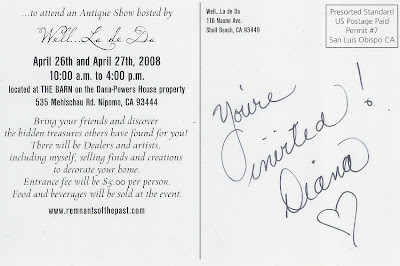 ...to attend an Antique Show hosted by
Well...La de Da
April 26th and April 27th, 2008
10:00 a.m. to 4:00 p.m.
located at THE BARN on the Dana-Powers House property
535 Mehlschau Rd. Nipomo, CA 93444
Bring your friends and discover
the hidden treasures others have found for you!
There will be Dealers and artists,
including myself, selling finds and creations
to decorate your home.
Entrance fee will be $5.00 per person.
Food and beverages will be sold at the event.
www.remnantsofthepast.com
Well...La de Da
116 Naomi Ave.
Shell Beach, CA 93449
Presorted Standard
US Postage Paid
Permit #7
San Luis Obispo CA
You're
invited!
Diana